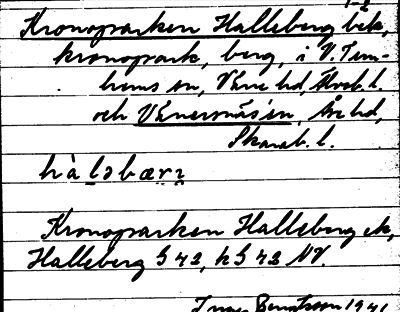 1-2
Kronoparken Halleberg bek,
kronopark, berg, i V. Tun-
hems sn, Väne hd, Älvsb. l.
och Vänersnäs sn, Åse hd,
Skarab. l.
hàləbærɪ
Kronoparken Halleberg ek,
Halleberg G 42, k G 42 NV.
Bengtsson 1941